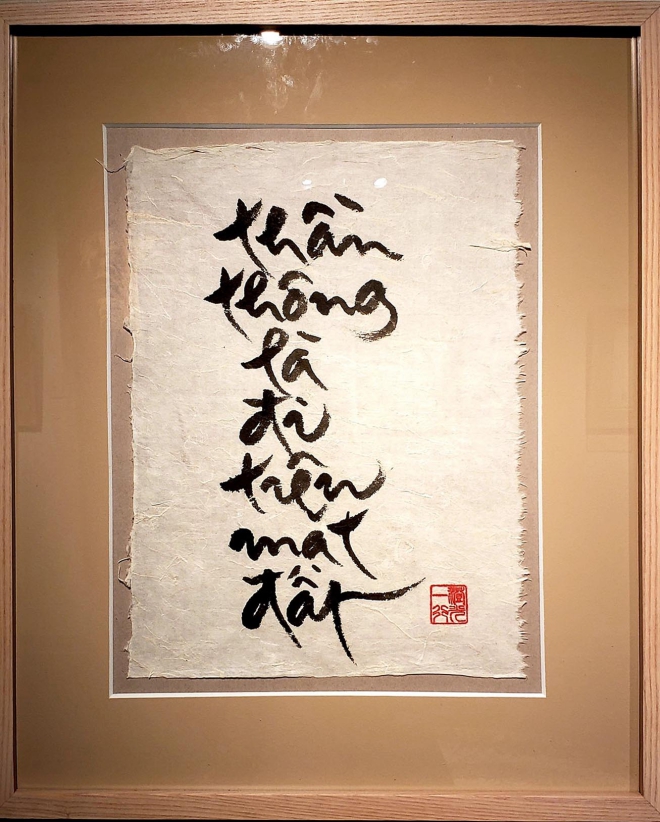 thần
thông
là
đi
trên
mặt
đất
澄光
一行